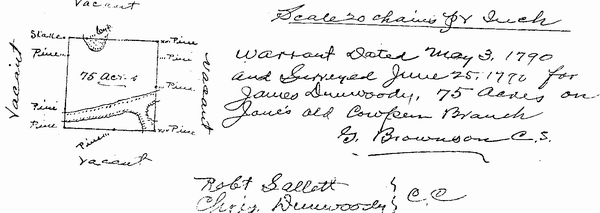 Vacant
Scale 20 chains pr Inch
Stake
Pine
Pine
Pine
Vacant
75 Acrs
Pine
Vacant
Pine
Pine
Pine
Pine
Pine
Vacant
Warrant Dated May 3, 1790
and Surveyed June 25, 1790 for
James Dunwoody, 75 Acres on
Jone's old Cowpen Branch
G. Brownson C.S.
Robt Sallett
Chris Dunwoody } C.C